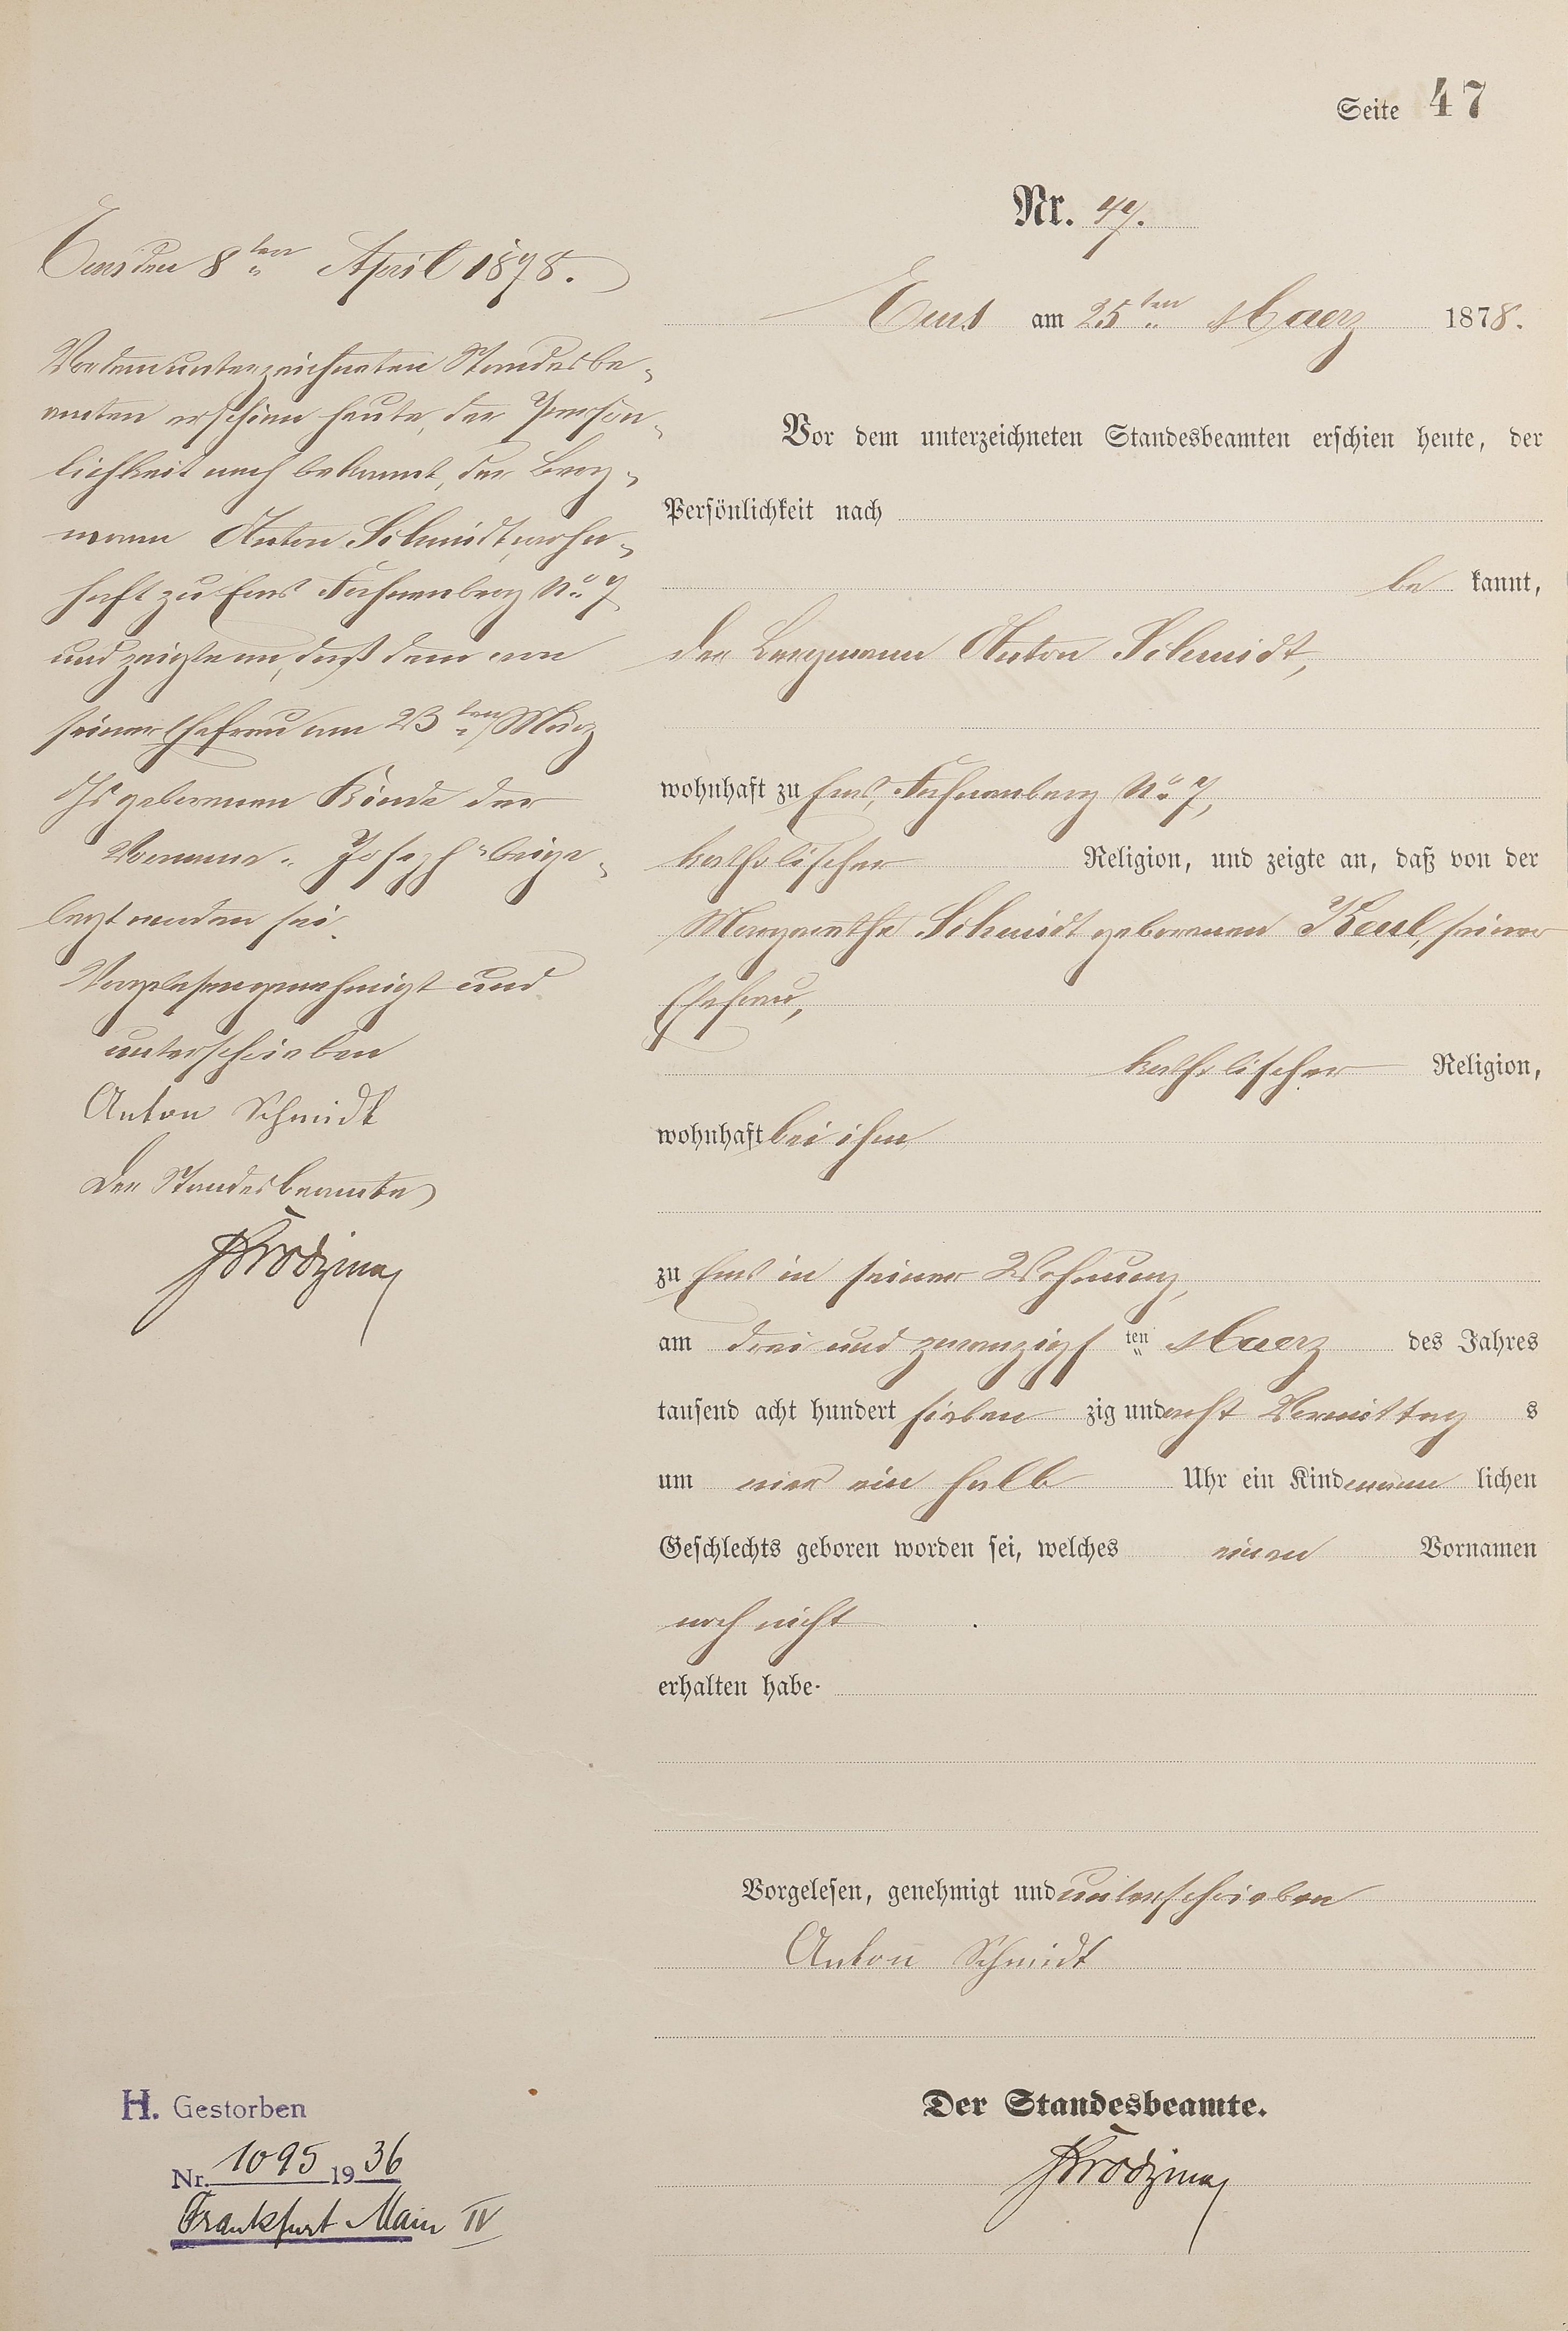 Seite 47
Nr. 47.
Ems am 25ten Maerz 1878.
Vor dem unterzeichneten Standesbeamten erschien heute, der
Persönlichkeit nach
be kannt,
der Bergmann Anton Schmidt,
wohnhaft zu Ems, No 7,
katholischer Religion, und zeigte an, daß von der
Margarethe Schmidt geborenen Keul, seiner
Ehefrau,
katholischer Religion,
wohnhaft bei ihm
zu Ems in seiner Wohnung,
am drei und zwanzigsten Maerz des Jahres
tausend acht hundert sieben zig und acht Vormittag s
um vier ein halb Uhr ein Kind männ lichen
Geschlechts geboren worden sei, welches einen Vornamen
noch nicht
erhalten habe.
Vorgelesen, genehmigt und unterschrieben
Anton Schmidt
Der Standesbeamte.
Ems den 8ten April 1878.
Vor dem unterzeichneten Standesbe-
amten erschien heute, der Persön-
lichkeit nach bekannt, der Berg-
mann Anton Schmidt, wohn-
haft zu Ems No 7
und zeigte an, daß dem von
seiner Ehefrau am 23ten März
geborenen Kinde der
Vorname "Joseph" beige-
legt worden sei.
Vorgelesen genehmigt und
unterschrieben
Anton Schmidt
Der Standesbeamte
H. Gestorben
Nr. 1095 1936
Frankfurt Main IV